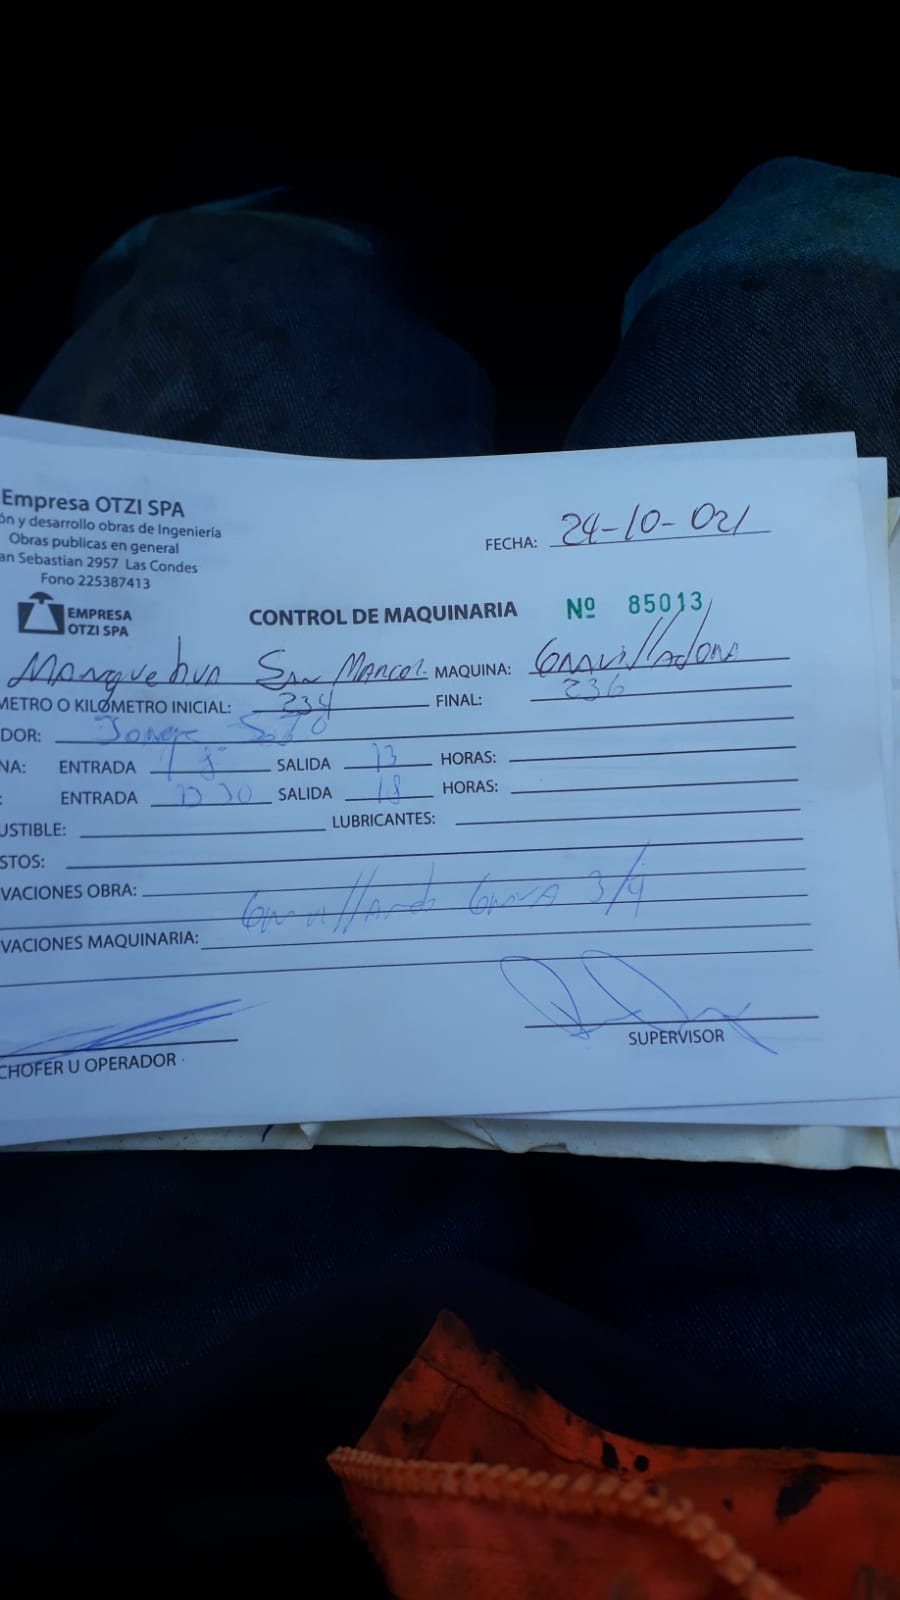 Empresa OTZI SPA
ón y desarrollo obras de Ingeniería
Obras publicas en general
an Sebastian 2957 Las Condes
Fono 225387413
FECHA: 24-10-021
EMPRESA
OTZI SPA
CONTROL DE MAQUINARIA Nº 85013
Manquehua San Marcos. MAQUINA: Gravilladora
METRO O KILOMETRO INICIAL: 234 FINAL: 236
DOR: Jorge Soto
NA: ENTRADA 8 SALIDA 13 HORAS:
: ENTRADA 13 30 SALIDA 18 HORAS:
USTIBLE: LUBRICANTES:
STOS:
VACIONES OBRA:
Gravillando Grava 3/4
VACIONES MAQUINARIA:
CHOFER U OPERADOR
SUPERVISOR